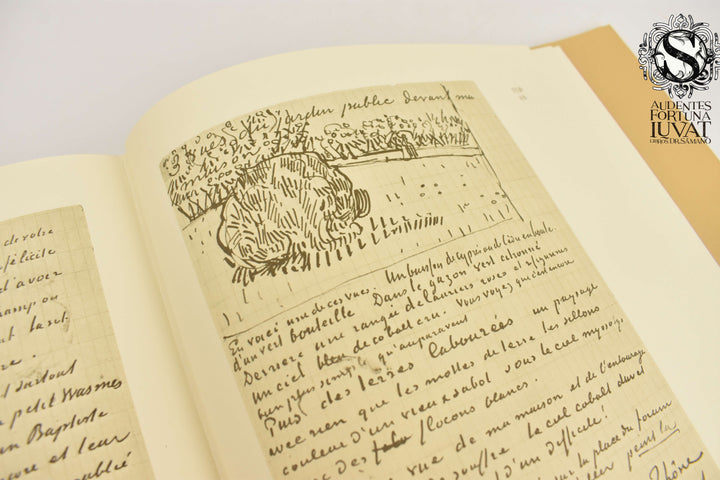 de votre
félicite
d'avoir
champ ou
tant
surtout
petit Wasmes
Baptiste
encore et leur
publié
Vues du jardin public devant ma
maison
En voici une de ces vues. Un buisson de cyprès ou de l'édu en boule
d'un vert bouteille Dans le gazon vert citronné
Derrière une rangée de lauriers roses et 2 figuières
un ciel bleu de cobalt cru. Vous voyez que c'est encore
bien plus simple qu'auparavant
Puis des terres labourées un paysage
avec rien que les mottes de terre les sillons
couleur d'un vieux sabot sous le ciel myosotis
des flocons blancs.
vue de ma maison et de l'entourage
de souffre le ciel cobalt dur et
d'un difficile!
sur la place du forum
peins la
Rhône
S
AUDENTES
FORTUNA
IUVAT
LIBROS DR. SÁMANO